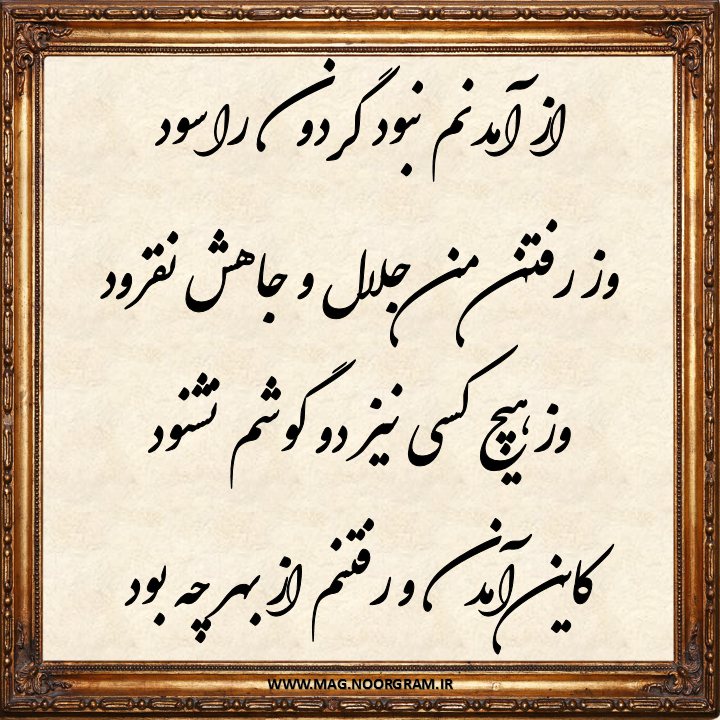 از آمدنم نبود گردون را سود
وز رفتن من جلال و جاهش نفزود
وز هیچ کسی نیز دو گوشم نشنود
کاین آمدن و رفتنم از بهر چه بود
WWW.MAG.NOORGRAM.IR